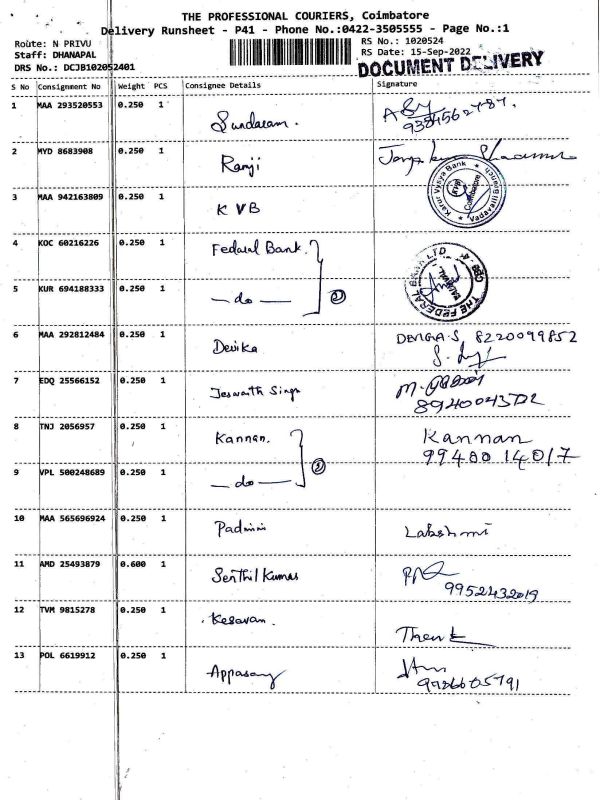 THE PROFESSIONAL COURIERS, Coimbatore
Delivery Runsheet - P41 - Phone No.:0422-3505555 - Page No.:1
Route: N PRIVU
Staff: DHANAPAL
DRS No.: DCJB102052401
RS No.: 1020524
RS Date: 15-Sep-2022
DOCUMENT DELIVERY
S No Consignment No Weight PCS Consignee Details Signature
1 MAA 293520553 0.250 1 Sundaram.
2 MYD 8683908 0.250 1 Ramji
3 MAA 942163809 0.250 1 KVB
Karur Vysya Bank
Coimbatore
4 KOC 60216226 0.250 1 Federal Bank.
5 KUR 694188333 0.250 1 — do — 2
THE FEDERAL BANK LTD
6 MAA 292812484 0.250 1 Devika DEVIGA.S 8220099852
7 EDQ 25566152 0.250 1 Jeswanth Singh
8 TNJ 2056957 0.250 1 Kannan. Kannan
99480 14017
9 VPL 500248689 0.250 1 — do — 2
10 MAA 565696924 0.250 1 Padmini Lakshmi
11 AMD 25493879 0.600 1 Senthil Kumar
9952432019
12 TVM 9815278 0.250 1 Kesavan.
13 POL 6619912 0.250 1 Appasamy